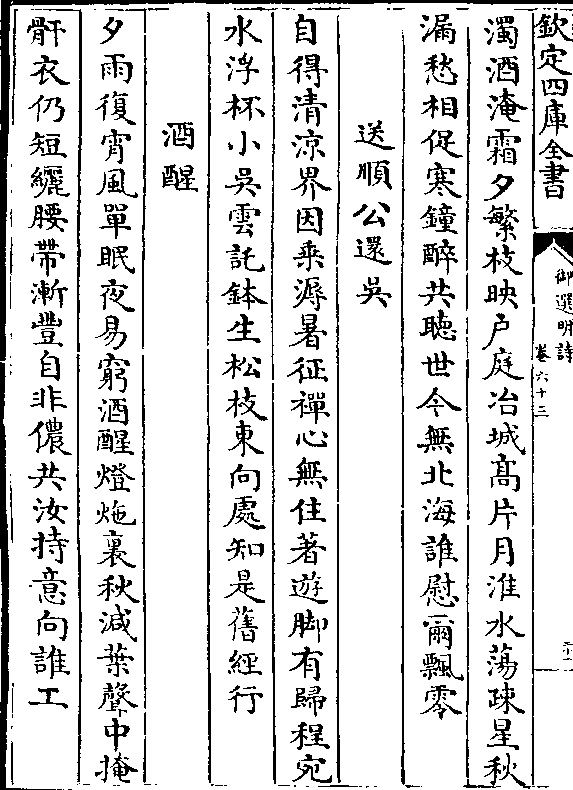 欽定四庫全書
御選明詩
卷六十三
濁酒淹霜夕繁枝映户庭冶城髙片月淮水蕩疎星秋
漏愁相促寒鐘醉共聽世今無北海誰慰爾飄零
送順公還吳
自得清涼界因乗溽暑征禪心無住著遊脚有歸程宛
水浮杯小吳雲託鉢生松枝東向處知是舊經行
酒醒
夕雨復宵風單眠夜易窮酒醒燈灺裏秋減葉聲中掩
骭衣仍短纚腰帶漸豐自非儂共汝持意向誰工